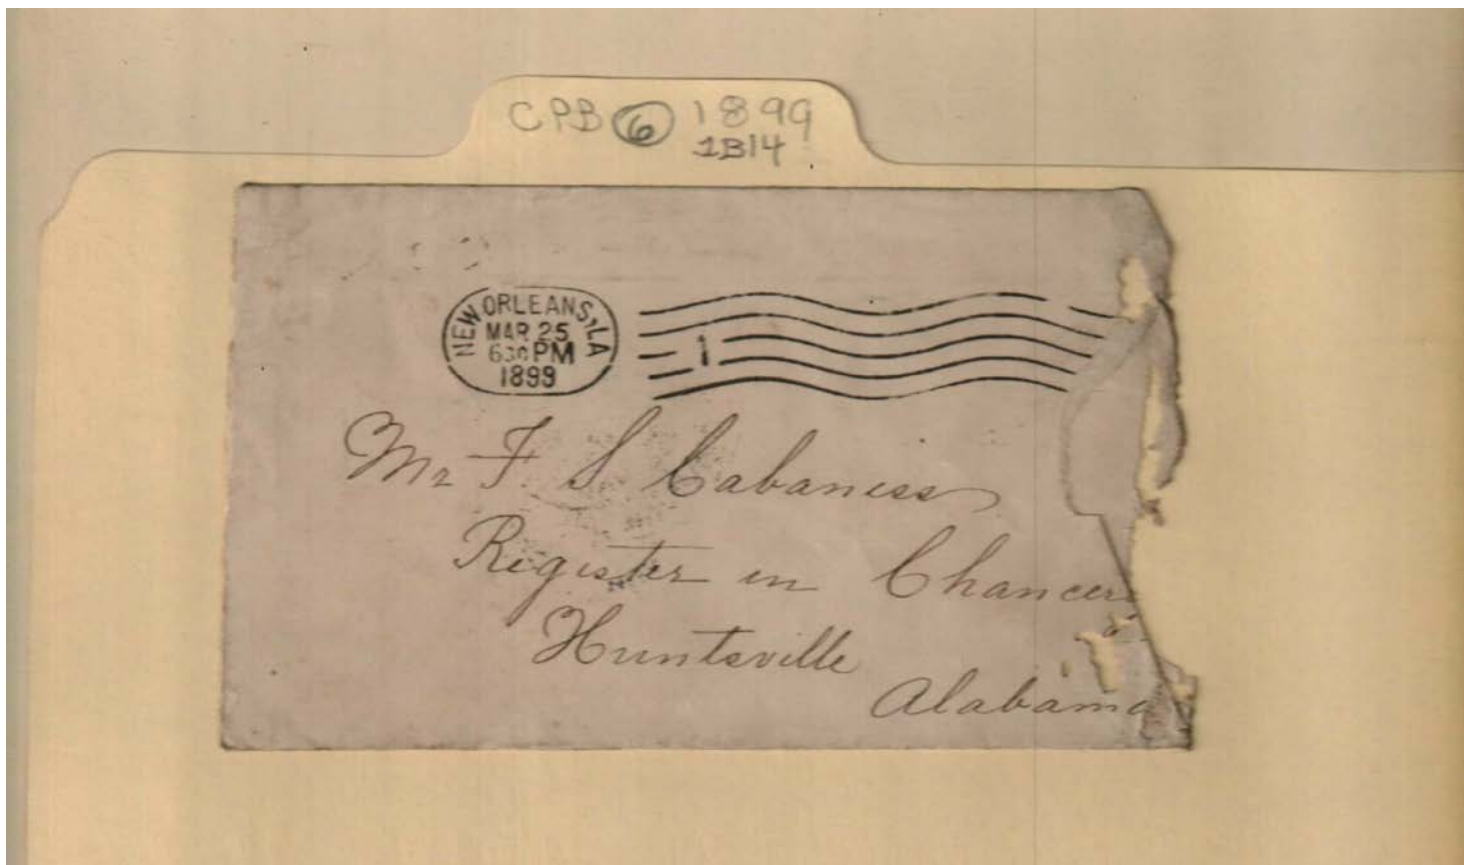 CPB 6 1899
1B14
NEW ORLEANS, LA
MAR 25
630 PM
1899
1
Mr F. S Cabaniss
Register in Chancer
Huntsville
Alabama